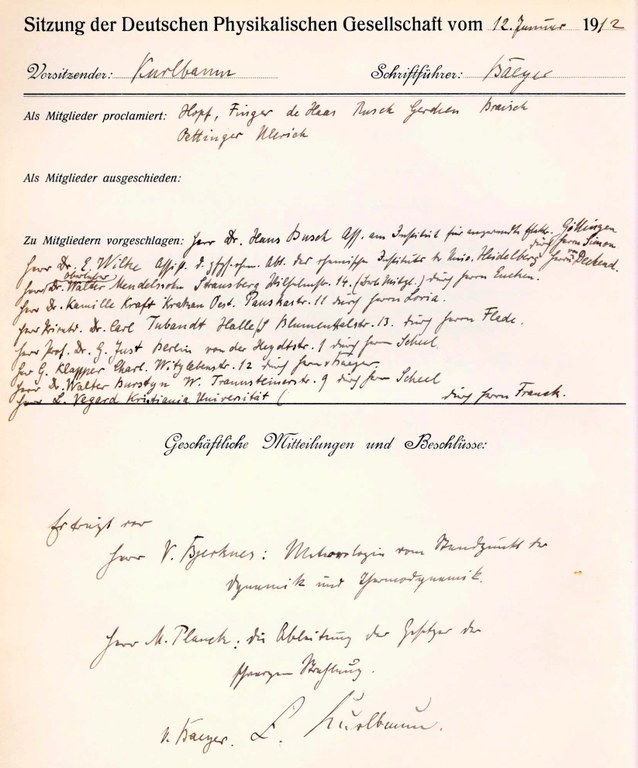 Sitzung der Deutschen Physikalischen Gesellschaft vom 12. Januar 1912
Vorsitzender: Kurlbaum Schriftführer: Baeyer
Als Mitglieder proclamiert: Hopf, Finger de Haas Rusch Gerdien Braisch
Oettinger Ulerich
Als Mitglieder ausgeschieden:
Zu Mitgliedern vorgeschlagen: Herr Dr. Hans Busch Ass. am Institut für angewandte Göttingen
durch Herrn Simon
Herr Dr. E. Wilke Assist. d. Abt. des chemischen Instituts d. Univ. Heidelberg Herrn
Herr Dr. Walter Mendelssohn Strausberg Wilhelmstr. 14. durch Herrn Eucken.
Herr Dr. Kamille Kraft Krakau Oest. Panskastr. 11 durch Herrn Loria.
Herr Dr. Carl Tubandt Halle/S Blumenthalstr. 13. durch Herrn Flade.
Herr Prof. Dr. G. Just Berlin von der Heydtstr. 1 durch Herrn Scheel
Herr G. Klapper Charl. Witzlebenstr. 12 durch Herrn v Baeyer.
Herr Dr. Walter Burstyn W. Traunsteinerstr. 9 durch Herrn Scheel
Herr L. Vegard Kristiania Universität ( durch Herrn Franck.
Geschäftliche Mitteilungen und Beschlüsse:
Es trägt vor
Herr V. Bjerknes: Meteorologie vom Standpunkt der
Dynamik und Thermodynamik.
Herr M. Planck: die Ableitung der Gesetze der
schwarzen Strahlung.
v. Baeyer. F. Kurlbaum.